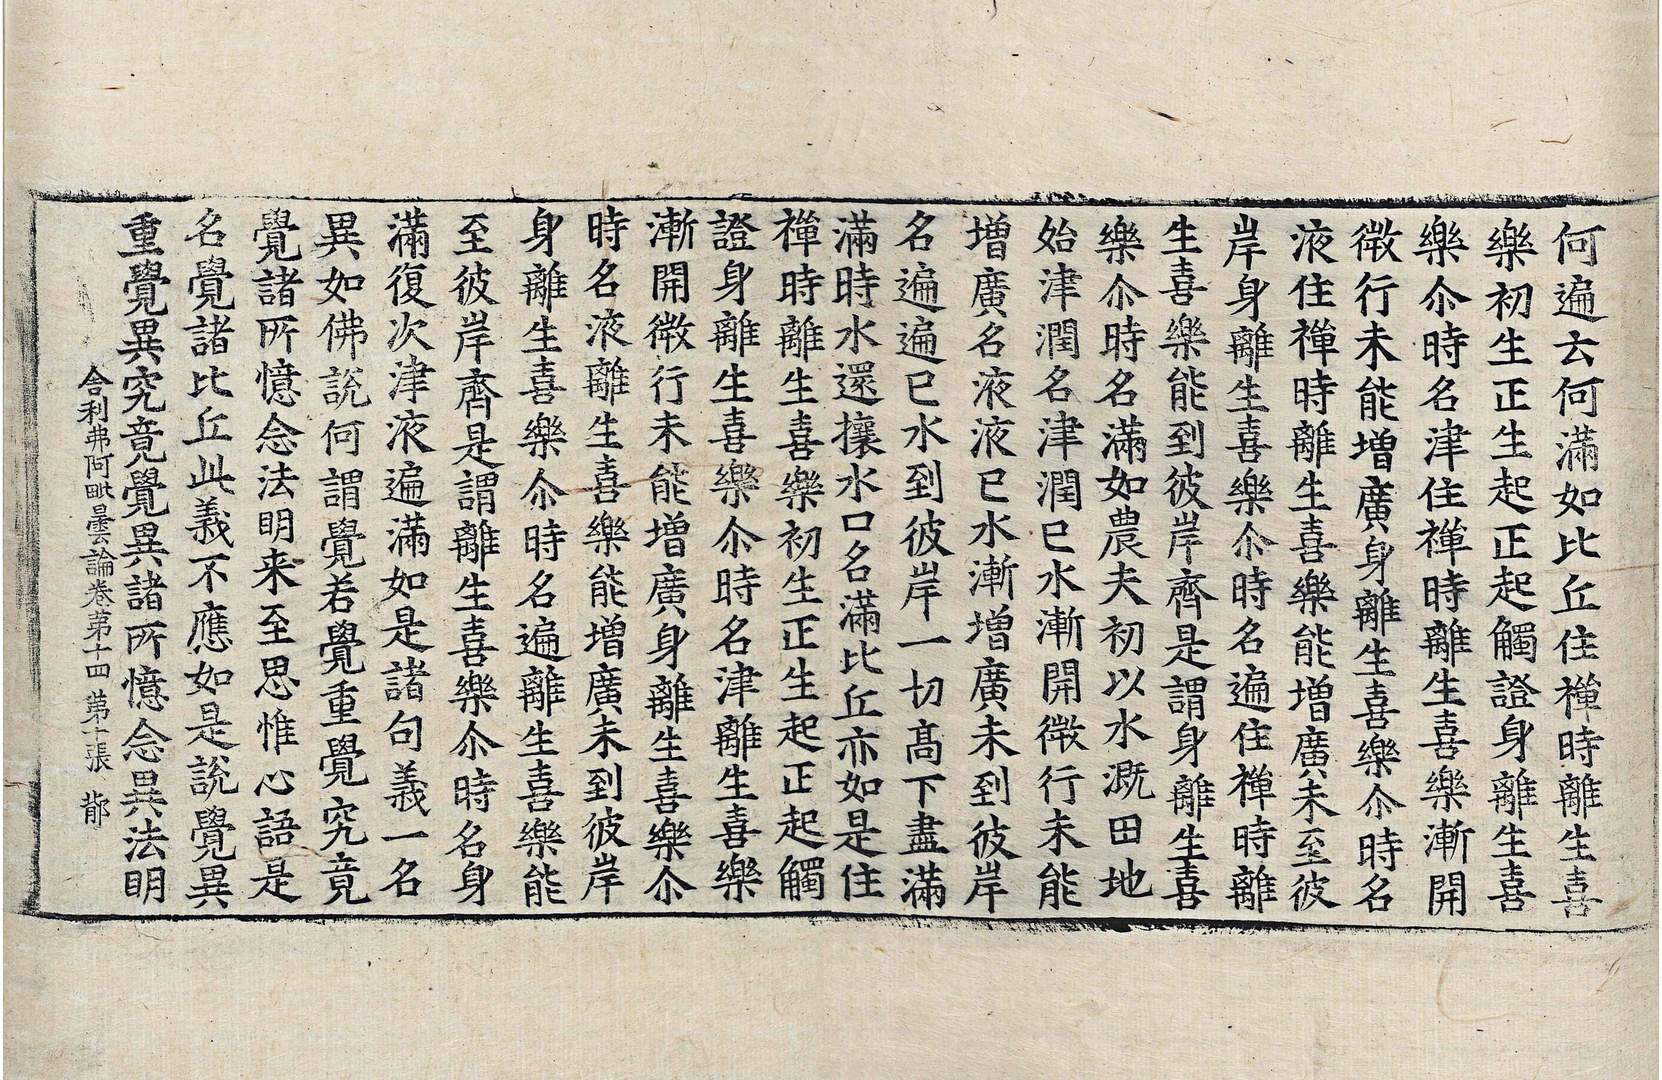 何遍云何滿如比丘住禪時離生喜
樂初生正生起正起觸證身離生喜
樂尒時名津住禪時離生喜樂漸開
微行未能增廣身離生喜樂尒時名
液住禪時離生喜樂能增廣未至彼
岸身離生喜樂尒時名遍住禪時離
生喜樂能到彼岸齊是謂身離生喜
樂尒時名滿如農夫初以水溉田地
始津潤名津潤已水漸開微行未能
增廣名液液已水漸增廣未到彼岸
名遍遍已水到彼岸一切高下盡滿
滿時水還攘水口名滿比丘亦如是住
禪時離生喜樂初生正生起正起觸
證身離生喜樂尒時名津離生喜樂
漸開微行未能增廣身離生喜樂尒
時名液離生喜樂能增廣未到彼岸
身離生喜樂尒時名遍離生喜樂能
至彼岸齊是謂離生喜樂尒時名身
滿復次津液遍滿如是諸句義一名
異如佛說何謂覺若覺重覺究竟
覺諸所憶念法明来至思惟心語是
名覺諸比丘此義不應如是說覺異
重覺異究竟覺異諸所憶念異法明
舍利弗阿毗曇論卷第十四 第十張 鄁